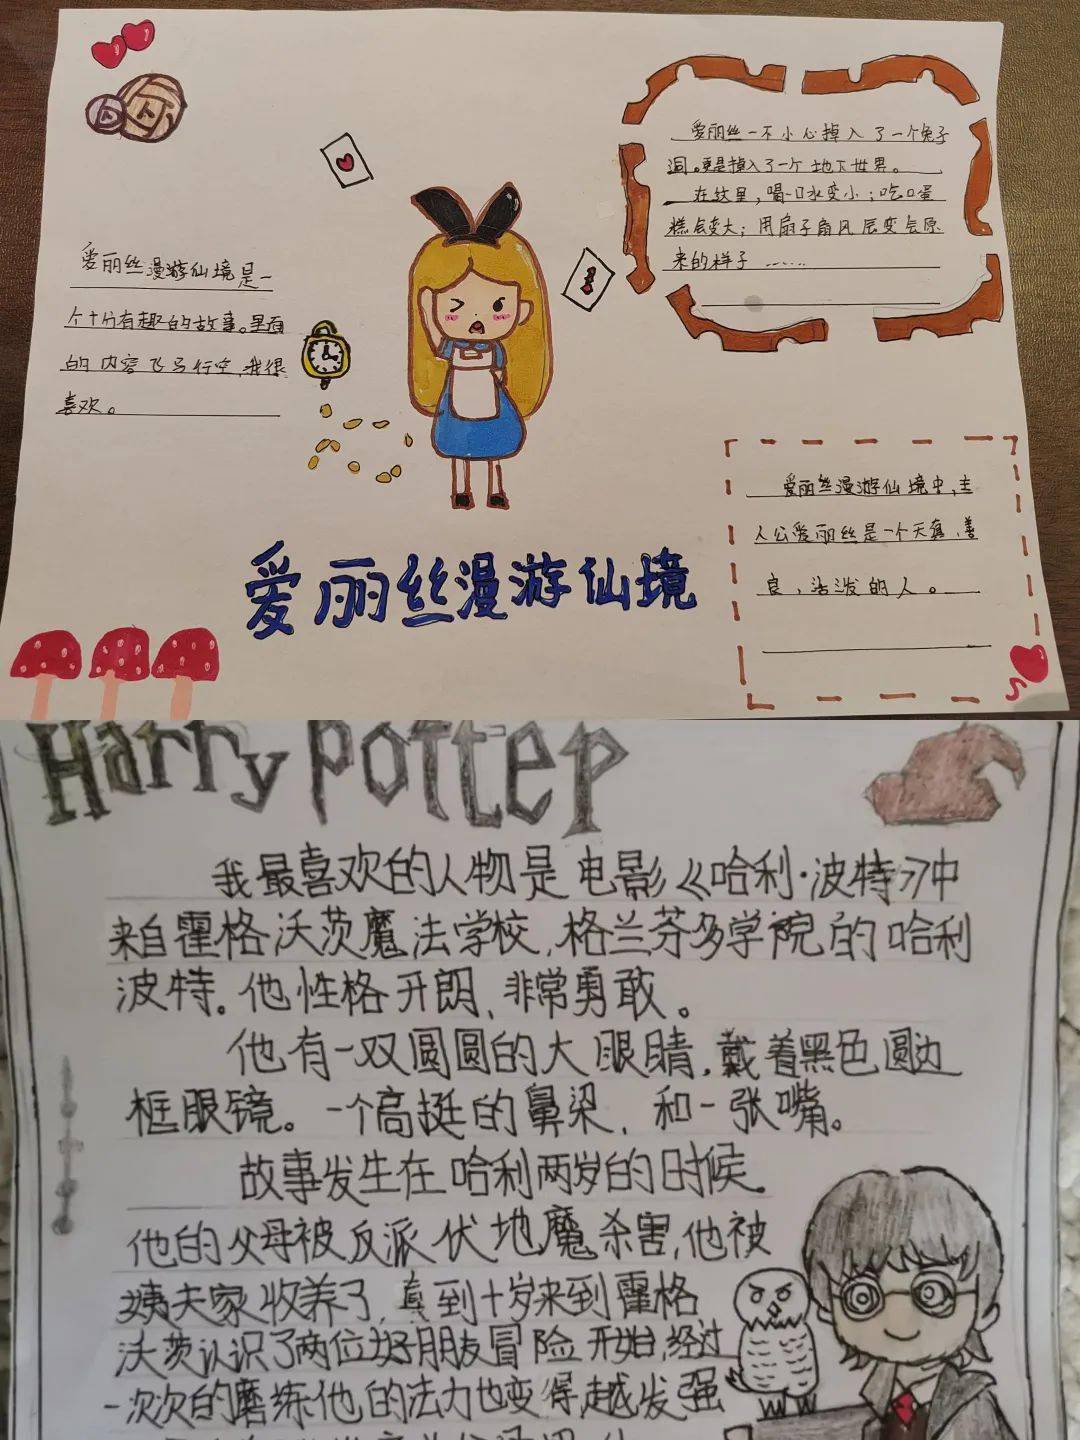 爱丽丝一不小心掉入了一个兔子
洞。更是掉入了一个地下世界。
在这里，喝口水变小；吃口蛋
糕会变大；用扇子扇风后变会原
来的样子……
爱丽丝漫游仙境是一
个十分有趣的故事。里面
的内容飞马行空，我很
喜欢。
爱丽丝漫游仙境中，主
人公爱丽丝是一个天真、善
良，活泼的人。
爱丽丝漫游仙境
Harry Potter
我最喜欢的人物是电影《哈利·波特》中
来自霍格沃茨魔法学校，格兰芬多学院的哈利
波特。他性格开朗，非常勇敢。
他有一双圆圆的大眼睛，戴着黑色圆边
框眼镜。一个高挺的鼻梁，和一张嘴。
故事发生在哈利两岁的时候。
他的父母被反派伏地魔杀害，他被
姨夫家收养了，真到十岁来到霍格
沃茨认识了两位好朋友冒险开始，经过
一次次的磨练他的法力也变得越发强